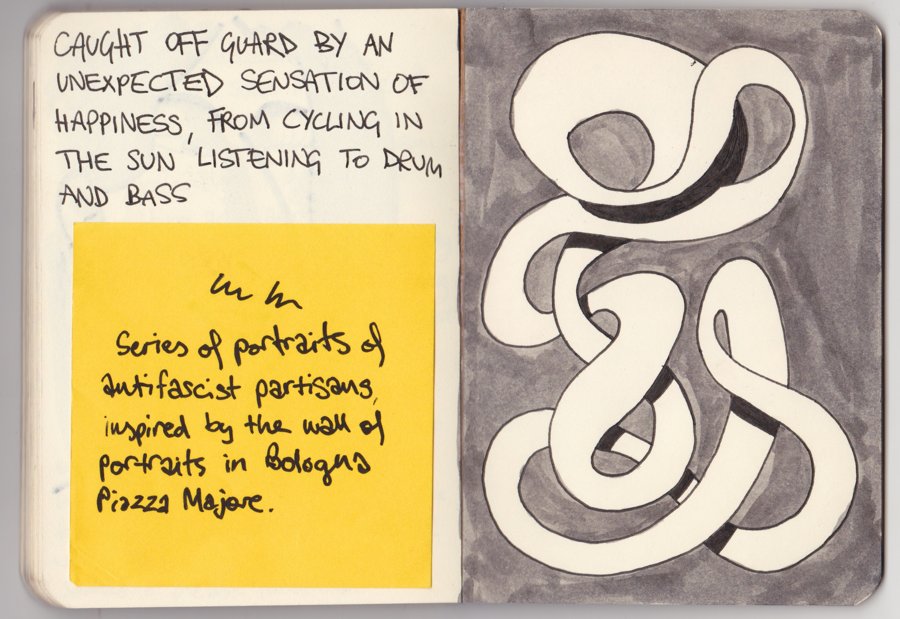 CAUGHT OFF GUARD BY AN
UNEXPECTED SENSATION OF
HAPPINESS, FROM CYCLING IN
THE SUN LISTENING TO DRUM
AND BASS
Series of portraits of
antifascist partisans,
inspired by the wall of
portraits in Bologna
Piazza Majore.